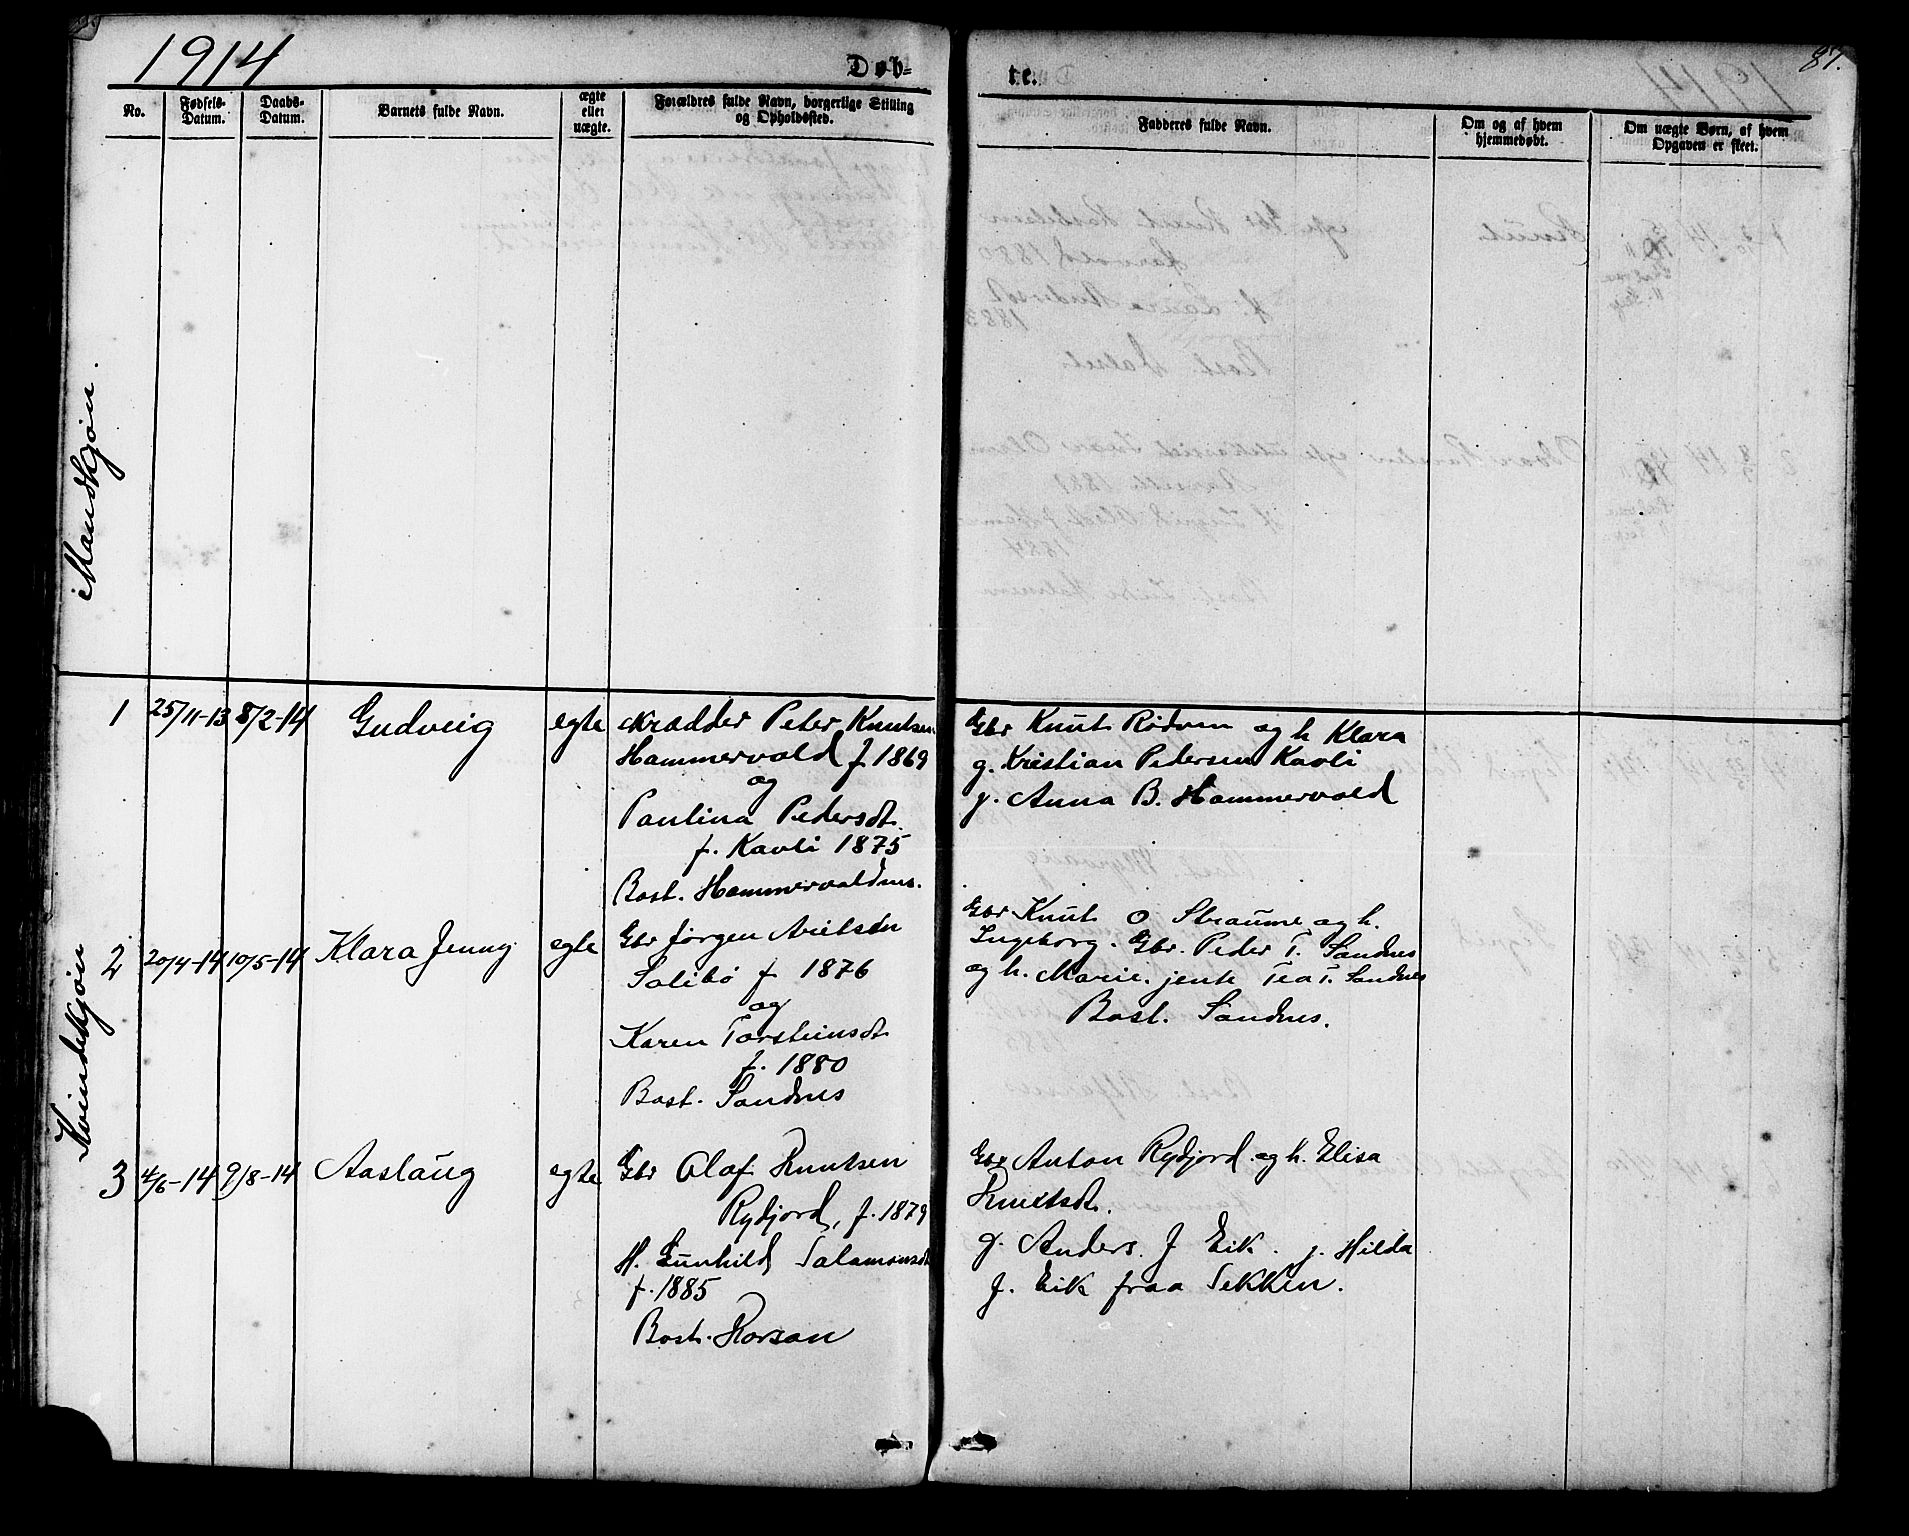 1914
Døb=
te.
87.
No.
Fødsels-
Datum.
Daabs-
Datum.
Barnets fulde Navn.
ægte
eller
uægte.
Forældres fulde Navn, borgerlige Stilling
og Opholdssted.
Fadderes fulde Navn.
Om og af hvem
hjemmedøbt.
Om uægte Børn, af hvem
Opgaven er skeet.
Mandkjøn.
Kvindekjøn
1 25/11-13 8/2-14 Gudveig egte
Skrædder Peter Knutsen
Hammervold f 1869
og
Paulina Pedersdt.
f. Kavli 1875
Bost. Hammervoldnes.
Gbr Knut Rødven og h Klara
g. Kristian Pedersen Kavli
p. Anna B. Hammervold
2 20/4-14 10/5-14 Klara Jenny egte
Gbr Jørgen Arietsen
Solibø f 1876
og
Karen Torsteinsdt
f. 1880
Bost. Sandnes
Gbr Knut O Straume og h.
Ingeborg. Gbr. Peder T. Sandnes
og h. Marie. jente Tea T. Sandnes
Bost. Sandnes.
3 4/6-14 9/8-14 Aaslaug egte
Gbr Olaf Knutsen
Rydjord, f. 1879
H. Gunhild Salamonsdt
f. 1885
Bost. Korsan
Gbr Anton Rydjord og h. Elisa
Knutsdt.
g. Anders. J Eik. p. Hilda
J. Eik fraa Sekken.